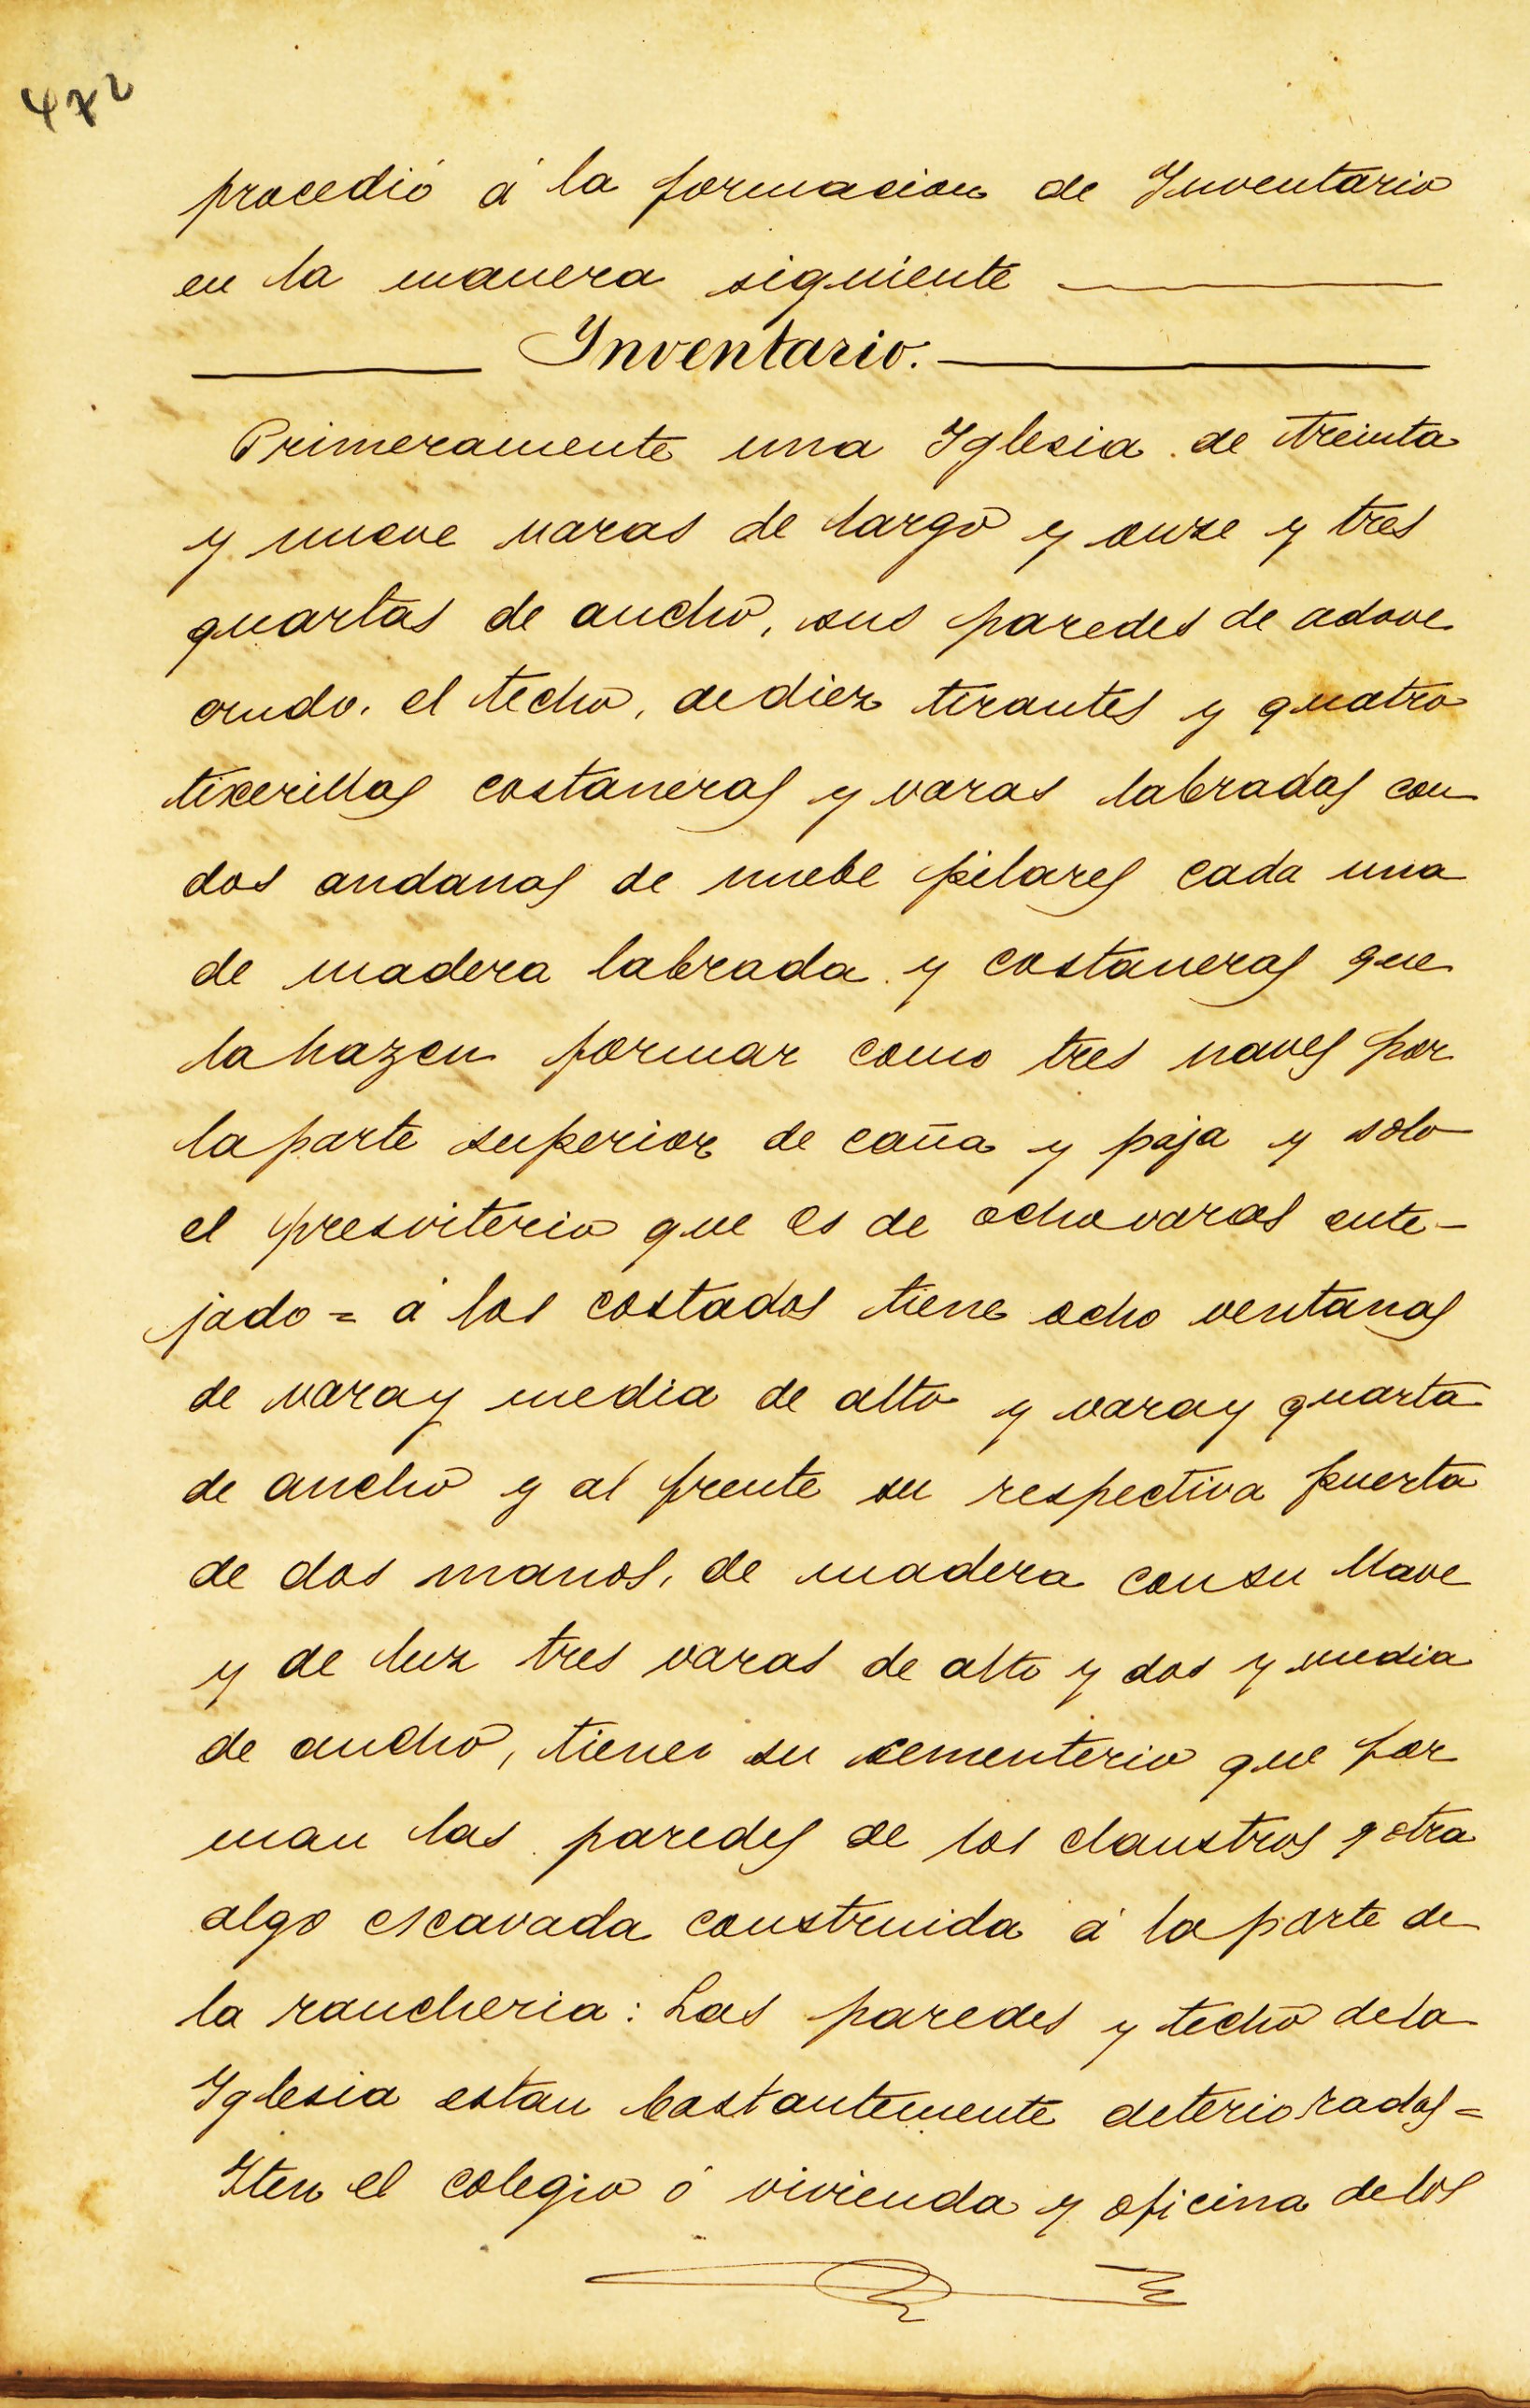 472
procedió á la formacion de Inventario
en la manera siguiente
Inventario.
Primeramente una Iglesia de treinta
y nueve varas de largo y onze y tres
quartas de ancho, sus paredes de adove
crudo. el techo, de diez tirantes y quatro
tixerillas costaneras y varas labradas con
dos andanas de nuebe pilares cada una
de madera labrada y costaneras que
la hazen formar como tres naves por
la parte superior de caña y paja y solo
el presviterio que es de ocho varas ente-
jado = á los costados tiene ocho ventanas
de vara y media de alto y vara y quarta
de ancho y al frente su respectiva puerta
de dos manos, de madera con su llave
y de luz tres varas de alto y dos y media
de ancho, tiene su sementerio que for
man las paredes de los claustros y otra
algo escavada construida á la parte de
la rancheria: Las paredes y techo de la
Iglesia estan bastantemente deteriorados =
Iten el colegio ó vivienda y oficina de los